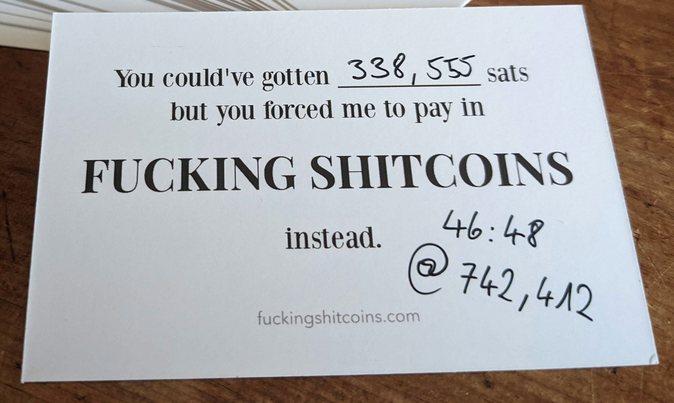 You could've gotten 338,555 sats
but you forced me to pay in
FUCKING SHITCOINS
instead.
46:48
@ 742,412
fuckingshitcoins.com